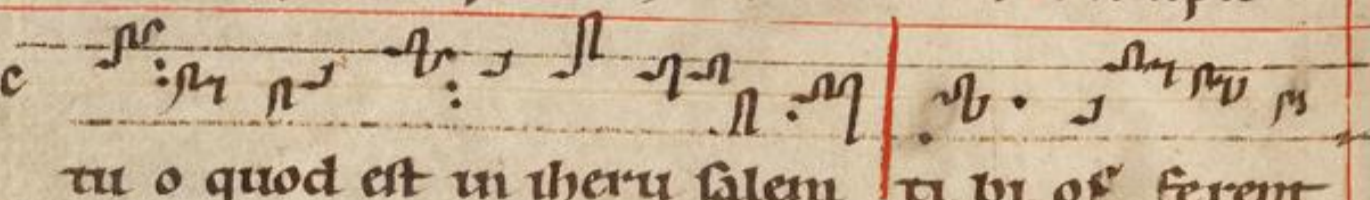 c
tu o quod est in iheru salem ti bi of ferent